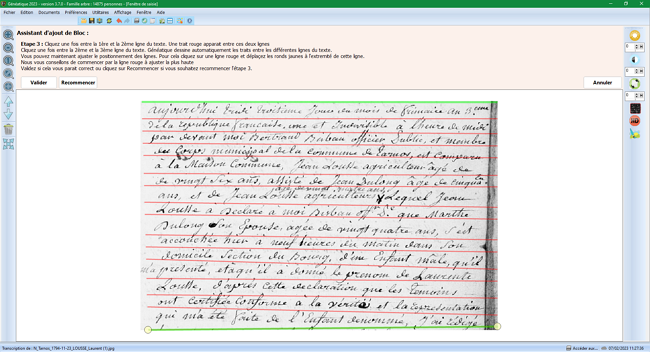 Généatique 2023 - version 3.7.0 - Famille arbre - 14875 personnes - [Fenêtre de saisie]
Fichier Edition Documents Préférences Utilitaires Affichage Thème Internet Fenêtre ?
Assistant d'ajout de Bloc :
Etape 3 : Cliquez une fois entre la 1ère et la 2ème ligne du texte. Une trait rouge apparait entre ces deux lignes
Cliquez une fois entre la 2ème et la 3ème ligne du texte. Généatique dessine automatiquement les traits entre les différentes lignes du texte.
Vous pouvez maintenant ajuster le positionnement des lignes. Pour cela cliquez sur une ligne rouge et déplacez les ronds jaunes à l'extremité de cette ligne.
Nous vous conseillons de commencer par la ligne rouge à ajuster la plus haute
Validez si cela vous parait correct ou cliquez sur Recommencer si vous souhaitez recommencer l'étape 3.
Valider Recommencer Annuler
aujourd'hui troisieme jour du mois de frimaire an 3eme
de la république française, une et indivisible à l'heure de midi
par devant moi Bertrand Babau officier public, et membre
du Corps municipal de la Commune de Tarnos, est comparu
à la Maison Commune, Jean Lousse agriculteur âgé de
de vingt six ans, assisté de Jean Dulong âgé de
ans, et de Jean Lousse agriculteurs Lequel Jean
Lousse a déclaré à moi Babau offer que Marthe
Dulong son épouse, agée de vingt quatre ans, s'est
accouchée hier à neuf heures du matin dans son
domicile section du Bourg, d'une Enfant male, qu'il
a présenté, et aqu'il a donné le prenom de Laurent
Lousse, d'après cette declaration que les temoins
ont certifiée conforme à la vérité et la representation
qui m'a été faite de l'Enfant denommé, j'ai rédigé
Transcription de : N_Tarnos_1794-11-23_LOUSSE_Laurent (1).jpg
Accéder aux...
07/02/2023 11:27:38